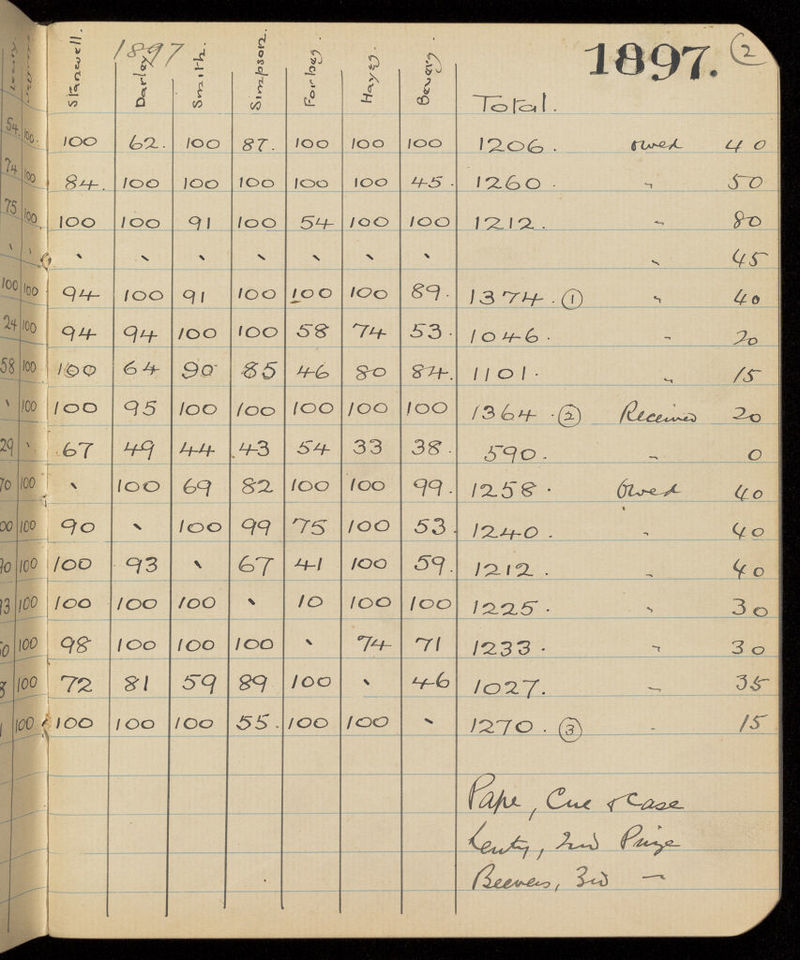 1897 1897. 2
Stanwell. Darley Smith. Simpson. Forbes. Hayes. Bevery. Total.
54. 100. 100 62. 100 87. 100 100 100 1206. owed 40
74 100 84. 100 100 100 100 100 45. 1260. " 50
75 100 100 100 91 100 54 100 100 1212. " 80
\ \ \ \ \ \ \ \ \ " 45
100 100 94 100 91 100 100 100 89. 1374. ① " 40
24 100 94 94 100 100 58 74 53. 1046. " 20
58 100 100 64 90 85 46 80 84. 1101. " 15
\ 100 100 95 100 100 100 100 100 1364. ② Received 20
29 \ 67 49 44 43 54 33 38. 590. " 0
70 100 \ 100 69 82 100 100 99. 1258. Owed 40
00 100 90 \ 100 99 75 100 53. 1240. " 40
90 100 100 93 \ 67 41 100 59. 1212. " 40
93 100 100 100 100 \ 10 100 100 1225. " 30
100 98 100 100 100 \ 74 71 1233. " 30
8 100 72 81 59 89 100 \ 46 1027. " 35
100 100 100 100 55. 100 100 \ 1270. ③ " 15
Pape, Cue & Case
Lenty, 2nd Prize
Beevers, 3rd —